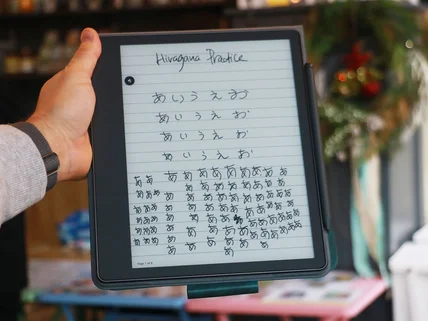 Hiragana Practice
あ い う え お
あ い う え お
あ い う え お
あ い う え お
ああ あああああああ
あああ あああああああ
あああ あ ああああああ
あああ あ あああああああ
あああ あ ああああああああ
あああ あ あああああああ
あああ あ あ あ あ あ
あ あ あ あ あ
あ
Page 1 of 6